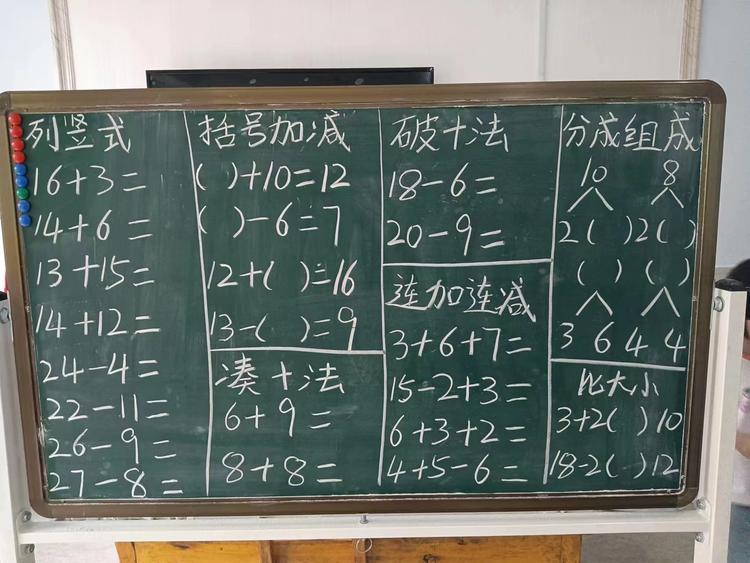 列竖式
16+3=
14+6=
13+15=
14+12=
24-4=
22-11=
26-9=
27-8=
括号加减
( )+10=12
( )-6=7
12+( )=16
13-( )=9
凑十法
6+9=
8+8=
破十法
18-6=
20-9=
连加连减
3+6+7=
15-2+3=
6+3+2=
4+5-6=
分成组成
10 8
2( ) 2( )
( ) ( )
3 6 4 4
比大小
3+2( )10
18-2( )12